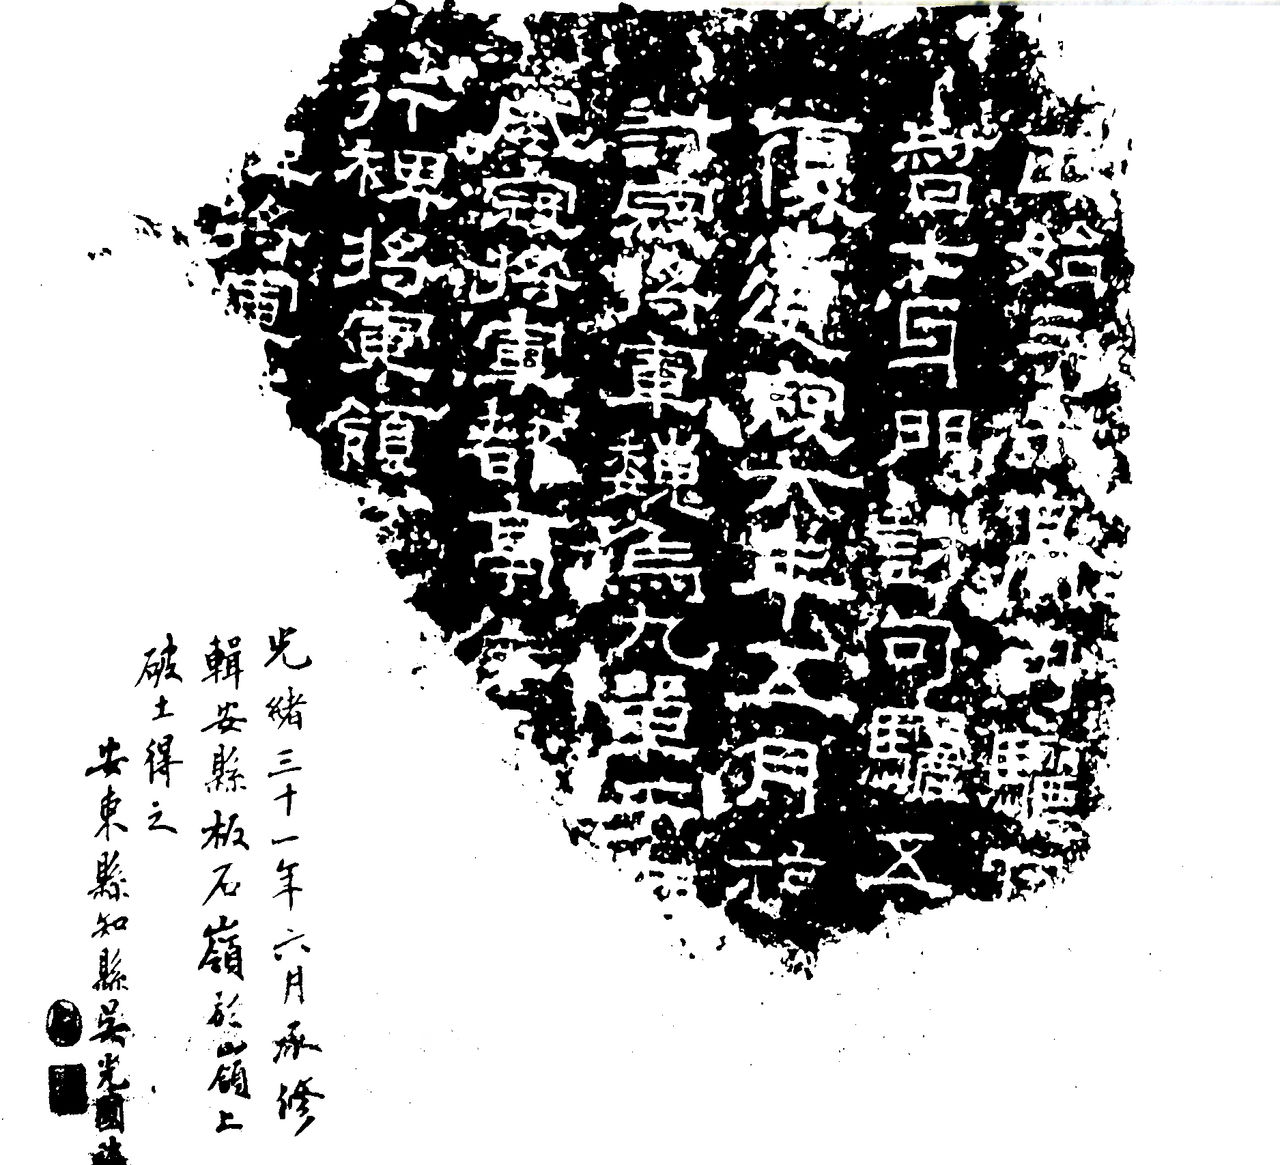 正始三年高句驪反
督七牙門討句驪五
復遺寇六年五月旋
討寇將軍魏烏丸單于
威寇將軍都亭侯
行裨將軍領
裨將軍
光緒三十一年六月承修
輯安縣板石嶺於山嶺上
破土得之
安東縣知縣吳光國